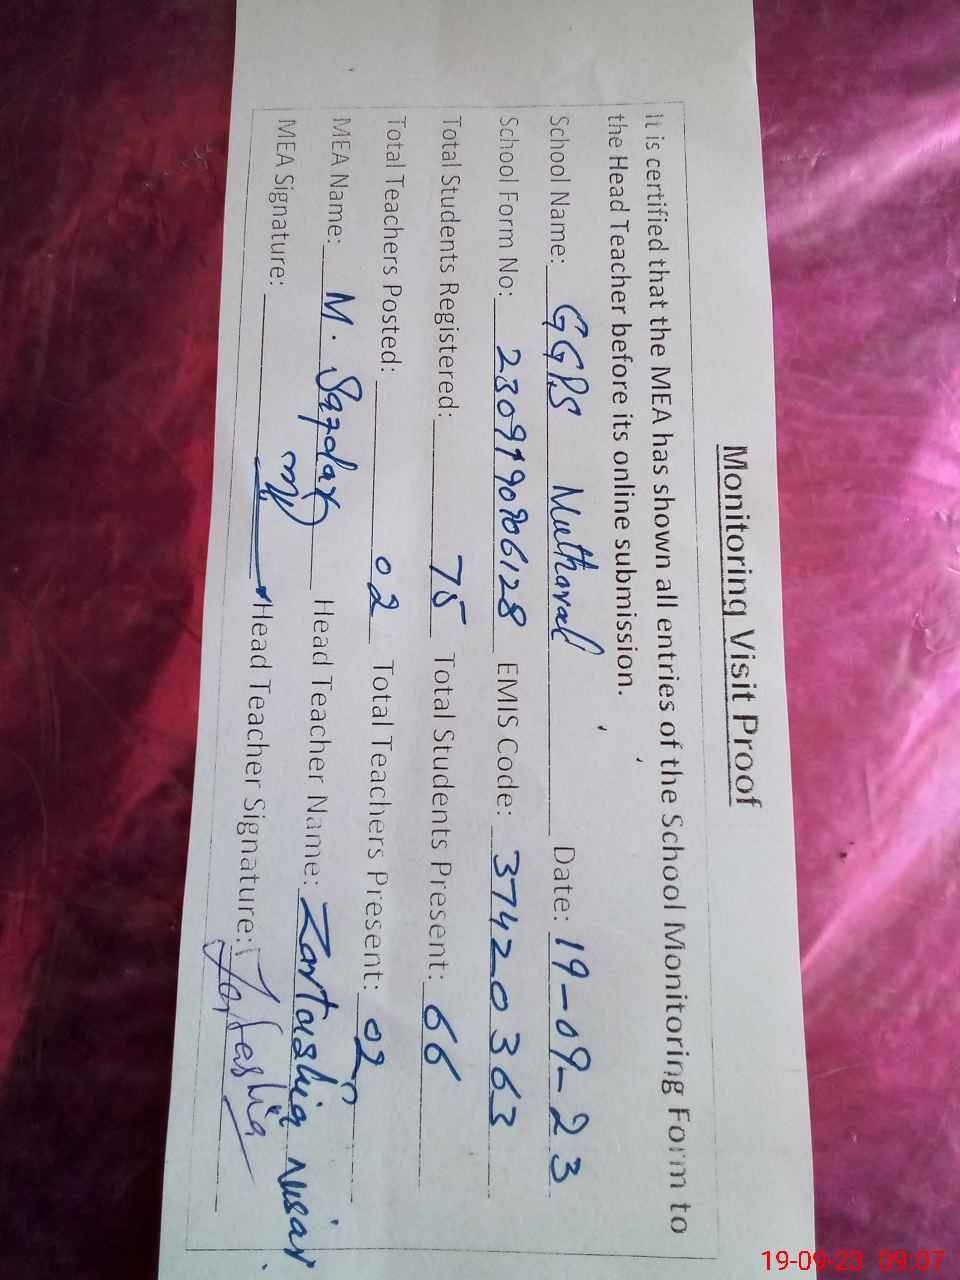 Monitoring Visit Proof
It is certified that the MEA has shown all entries of the School Monitoring Form to
the Head Teacher before its online submission.
School Name: GGPS Muthoral Date: 19-09-23
School Form No: EMIS Code: 37420363
Total Students Registered: 75 Total Students Present: 66
Total Teachers Posted: 02 Total Teachers Present: 02
MEA Name: M. Safdar Head Teacher Name: Zartashia Nisar
MEA Signature: Head Teacher Signature: Zartashia
19-09-23 09:07